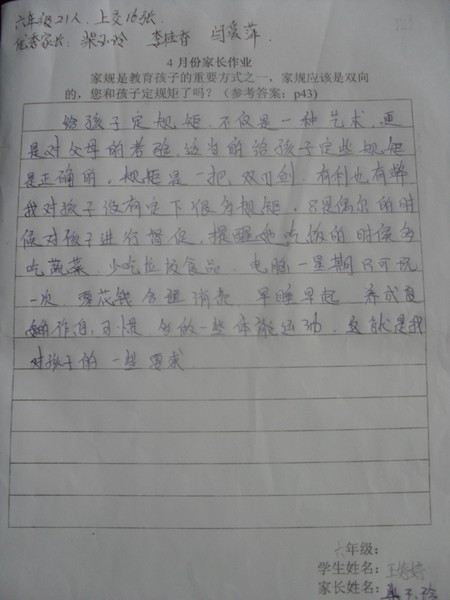 六年级21人，上交16张
优秀家长：梁玉玲 李桂香 闫爱萍
4月份家长作业
家规是教育孩子的重要方式之一，家规应该是双向
的，您和孩子定规矩了吗？（参考答案：p43）
给孩子定规矩，不仅是一种艺术，更
是对父母的考验，适当的给孩子定些规矩
是正确的，规矩是一把双刃剑，有利也有弊
我对孩子没有定下很多规矩，只是偶尔的时
候对孩子进行督促，提醒她吃饭的时候多
吃蔬菜，少吃垃圾食品，电脑一星期只可玩
一次，零花钱合理消费，早睡早起，养成良
好作息习惯 多做一些体能运动，这就是我
对孩子的一些要求
六年级：
学生姓名：王婷婷
家长姓名：梁玉玲